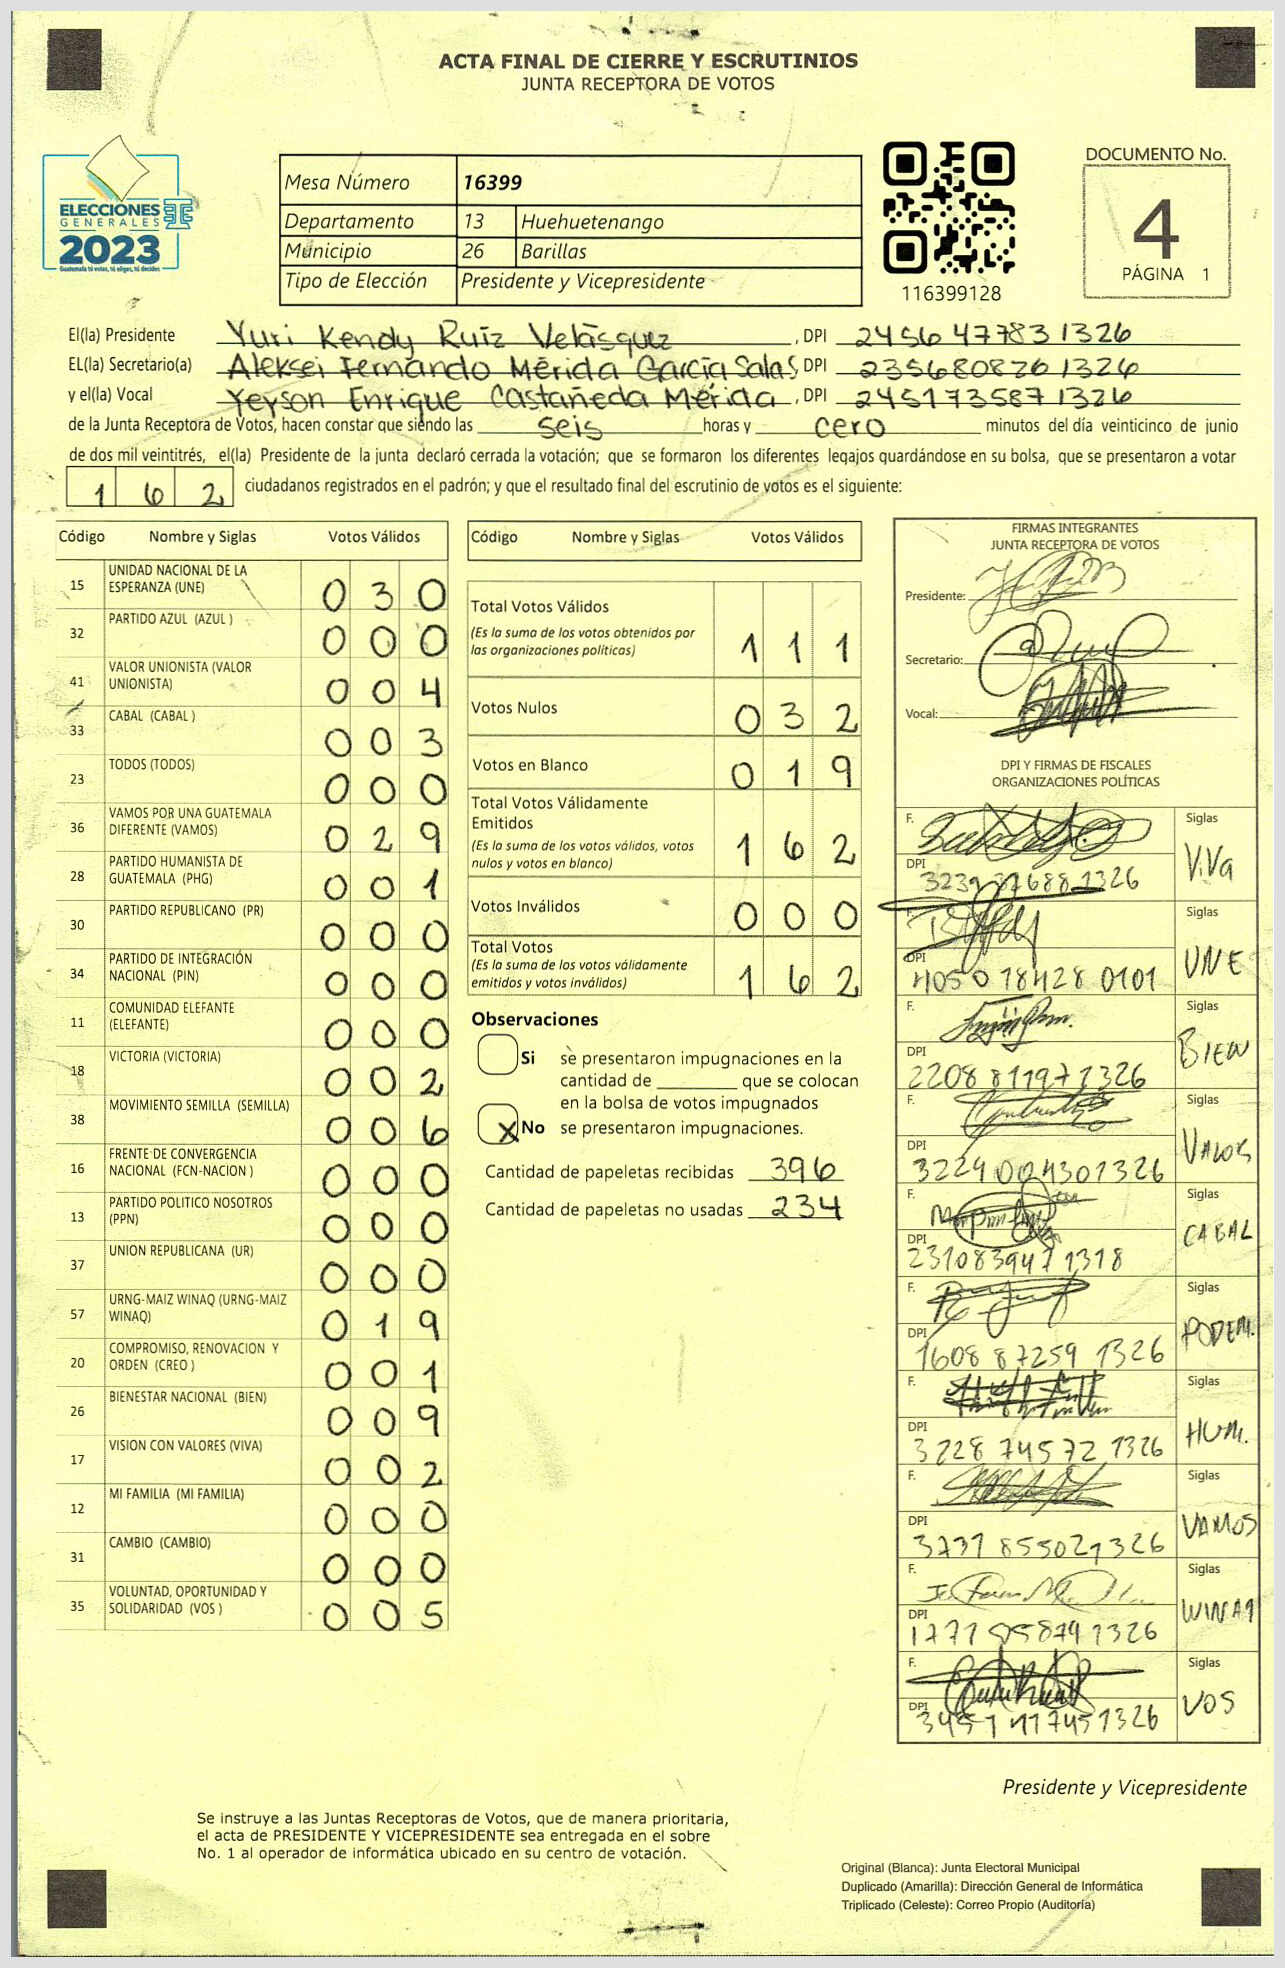 ACTA FINAL DE CIERRE Y ESCRUTINIOS
JUNTA RECEPTORA DE VOTOS
ELECCIONES
GENERALES
2023
Guatemala tú votas, tú eliges, tú decides
Mesa Número 16399
Departamento 13 Huehuetenango
Municipio 26 Barillas
Tipo de Elección Presidente y Vicepresidente
116399128
DOCUMENTO No.
4
PÁGINA 1
El(la) Presidente Yuri Kendy Ruiz Velásquez, DPI 2456 47783 1326
EL(la) Secretario(a) Aleksei Fernando Mérida García Salas, DPI 235680826 1326
y el(la) Vocal Yeyson Enrique Castañeda Mérida, DPI 245173587 1326
de la Junta Receptora de Votos, hacen constar que siendo las seis horas y cero minutos del día veinticinco de junio
de dos mil veintitrés, el(la) Presidente de la junta declaró cerrada la votación; que se formaron los diferentes legajos guardándose en su bolsa, que se presentaron a votar
162 ciudadanos registrados en el padrón; y que el resultado final del escrutinio de votos es el siguiente:
Código Nombre y Siglas Votos Válidos
15 UNIDAD NACIONAL DE LA ESPERANZA (UNE) 030
32 PARTIDO AZUL (AZUL ) 000
41 VALOR UNIONISTA (VALOR UNIONISTA) 004
33 CABAL (CABAL ) 003
23 TODOS (TODOS) 000
36 VAMOS POR UNA GUATEMALA DIFERENTE (VAMOS) 029
28 PARTIDO HUMANISTA DE GUATEMALA (PHG) 001
30 PARTIDO REPUBLICANO (PR) 000
34 PARTIDO DE INTEGRACIÓN NACIONAL (PIN) 000
11 COMUNIDAD ELEFANTE (ELEFANTE) 000
18 VICTORIA (VICTORIA) 002
38 MOVIMIENTO SEMILLA (SEMILLA) 006
16 FRENTE DE CONVERGENCIA NACIONAL (FCN-NACION ) 000
13 PARTIDO POLITICO NOSOTROS (PPN) 000
37 UNION REPUBLICANA (UR) 000
57 URNG-MAIZ WINAQ (URNG-MAIZ WINAQ) 019
20 COMPROMISO, RENOVACION Y ORDEN (CREO ) 001
26 BIENESTAR NACIONAL (BIEN) 009
17 VISION CON VALORES (VIVA) 002
12 MI FAMILIA (MI FAMILIA) 000
31 CAMBIO (CAMBIO) 000
35 VOLUNTAD, OPORTUNIDAD Y SOLIDARIDAD (VOS ) 005
Código Nombre y Siglas Votos Válidos
Total Votos Válidos
(Es la suma de los votos obtenidos por
las organizaciones políticas) 111
Votos Nulos 032
Votos en Blanco 019
Total Votos Válidamente
Emitidos
(Es la suma de los votos válidos, votos
nulos y votos en blanco) 162
Votos Inválidos 000
Total Votos
(Es la suma de los votos válidamente
emitidos y votos inválidos) 162
Observaciones
Si se presentaron impugnaciones en la
cantidad de ________ que se colocan
en la bolsa de votos impugnados
X No se presentaron impugnaciones.
Cantidad de papeletas recibidas 396
Cantidad de papeletas no usadas 234
FIRMAS INTEGRANTES
JUNTA RECEPTORA DE VOTOS
Presidente:
Secretario:
Vocal:
DPI Y FIRMAS DE FISCALES
ORGANIZACIONES POLÍTICAS
F. Siglas
DPI 1326 ViVa
F. Siglas
DPI 4050 78428 0101 UNE
F. Siglas
DPI 2208 81197 1326 BIEN
F. Siglas
DPI 3224 00430 1326 VALOR
F. Siglas
DPI 231083947 1318 CABAL
F. Siglas
DPI 1608 87259 1326 PODEM.
F. Siglas
DPI 3228 74572 1326 HUM.
F. Siglas
DPI 3737 85502 1326 VAMOS
F. Siglas
DPI 1326 WINAQ
F. Siglas
DPI 1326 VOS
Presidente y Vicepresidente
Se instruye a las Juntas Receptoras de Votos, que de manera prioritaria,
el acta de PRESIDENTE Y VICEPRESIDENTE sea entregada en el sobre
No. 1 al operador de informática ubicado en su centro de votación.
Original (Blanca): Junta Electoral Municipal
Duplicado (Amarilla): Dirección General de Informática
Triplicado (Celeste): Correo Propio (Auditoría)